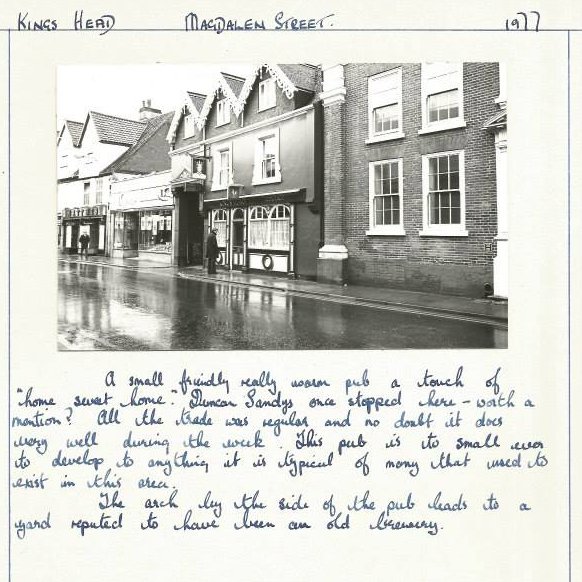 KINGS HEAD MAGDALEN STREET. 1977
A small friendly really warm pub a touch of
"home sweet home". Duncan Sandys once stopped here - worth a
mention? All the trade was regular and no doubt it does
very well during the week. This pub is to small ever
to develop to anything it is typical of many that used to
exist in this area.
The arch by the side of the pub leads to a
yard reputed to have been an old brewery.